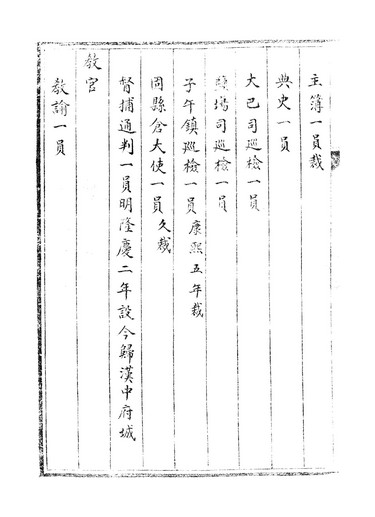 主簿一員裁
典史一員
大巴司巡檢一員
鹽場司巡檢一員
子午鎮巡檢一員康熙五年裁
固縣倉大使一員久裁
督捕通判一員明隆慶二年設今歸漢中府城
教官
教諭一員